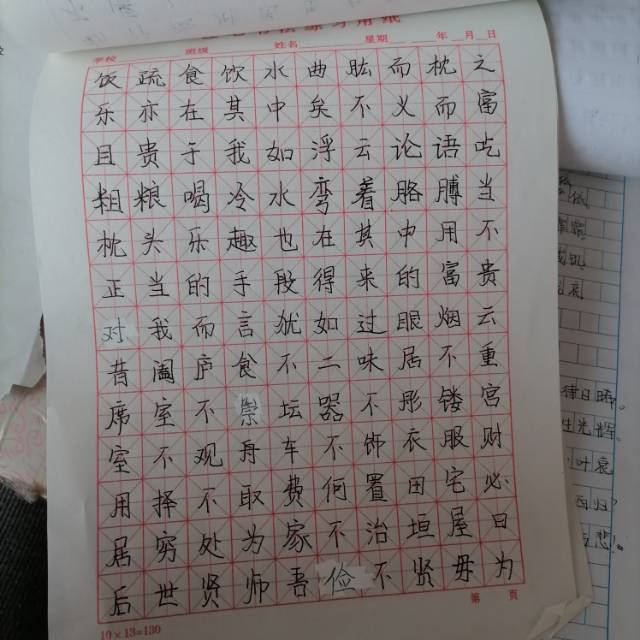 学校 班级 姓名 星期 年 月 日
饭疏食饮水曲肱而枕之
乐亦在其中矣不义而富
且贵于我如浮云论语吃
粗粮喝冷水弯着胳膊当
枕头乐趣也在其中用不
正当的手段得来的富贵
对我而言犹如过眼烟云
昔阖庐食不二味居不重
席室不崇坛器不彤镂宫
室不观舟车不饰衣服财
用择不取费何置田宅必
居穷处为家不治垣屋曰
后世贤师吾俭不贤毋为
第 页
10×13=130